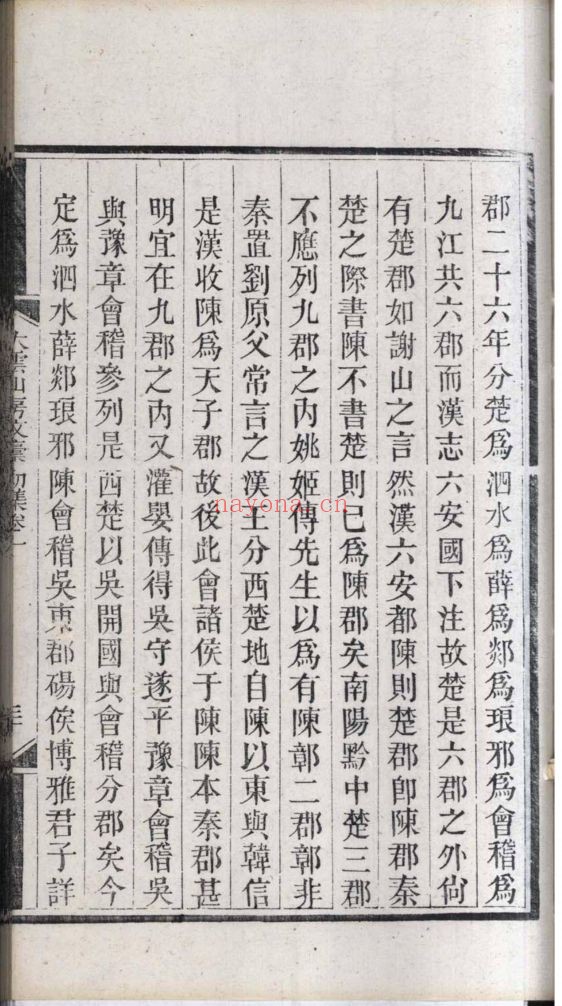 郡二十六年分楚爲泗水爲薛爲郯爲琅邪爲會稽爲
九江共六郡而漢志六安國下注故楚是六郡之外尙
有楚郡如謝山之言然漢六安都陳則楚郡卽陳郡秦
楚之際書陳不書楚則已爲陳郡矣南陽黔中楚三郡
不應列九郡之內姚姬傳先生以爲有陳鄣二郡鄣非
秦置劉原父常言之漢王分西楚地自陳以東與韓信
是漢收陳爲天子郡故後此會諸侯于陳陳本秦郡甚
明宜在九郡之內又灌嬰傳得吳守遂平豫章會稽吳
與豫章會稽參列是西楚以吳開國與會稽分郡矣今
定爲泗水薛郯琅邪陳會稽吳東郡碭俟博雅君子詳
大雲山房文藁初集卷一
nayona.cn